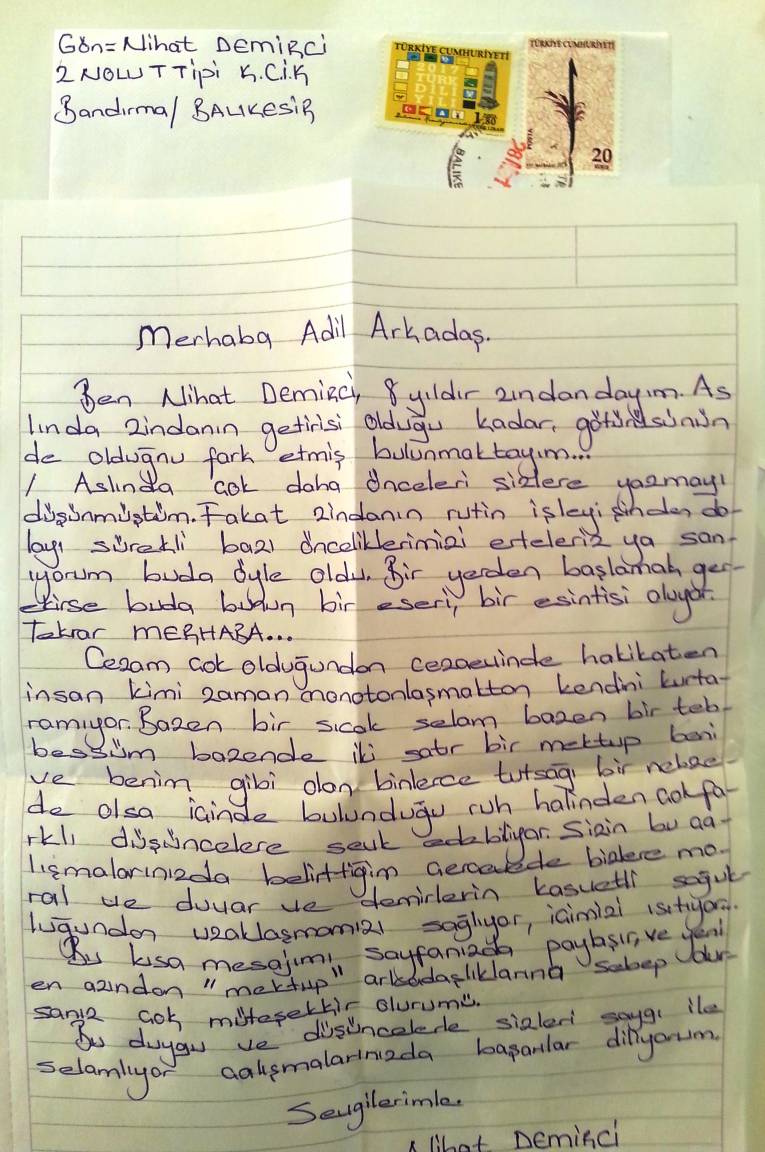 Gön=Nihat DEMİRCİ
2 NOLU T Tipi K.C.İ.K
Bandırma/ BALIKESİR
TÜRKİYE CUMHURİYETİ
2017
TÜRK
DİLİ
YILI
TÜRKİYE CUMHURİYETİ
POSTA
20
BALIKE
Merhaba Adil Arkadaş.
Ben Nihat DEMİRCİ, 8 yıldır zindandayım. As
lında zindanın getirisi olduğu kadar, götürüsünün
de olduğnu fark etmiş bulunmaktayım...
/ Aslında çok daha önceleri sizlere yazmayı
düşünmüştüm. Fakat zindanın rutin işleyişinden do-
layı sürekli bazı önceliklerimizi erteleriz ya san-
ıyorum buda öyle oldu. Bir yerden başlamak ger-
ekirse buda bunun bir eseri, bir esintisi oluyor.
Tekrar MERHABA...
Cezam çok olduğundan cezaevinde hakikaten
insan kimi zaman monotonlaşmaktan kendini kurta-
ramıyor. Bazen bir sıcak selam bazen bir teb-
bessüm bazende iki satır bir mektup beni
ve benim gibi olan binlerce tutsağı bir nebze-
de olsa içinde bulunduğu ruh halinden çok fa-
rklı düşüncelere sevk edebiliyor. Sizin bu ça-
lışmalarınızda belirttiğim çerçevede bizlere mo-
ral ve duvar ve demirlerin kasvetli soğuk
luğundan uzaklaşmamızı sağlıyor, içimizi ısıtıyor...
Bu kısa mesajımı sayfanızda paylaşır, ve yeni
en azından "mektup" arkadaşlıklarına sebep olur-
sanız çok müteşekkir olurum.
Bu duygu ve düşüncelerle sizleri saygı ile
selamlıyor çalışmalarınızda başarılar diliyorum.
Sevgilerimle.
Nihat DEMİRCİ